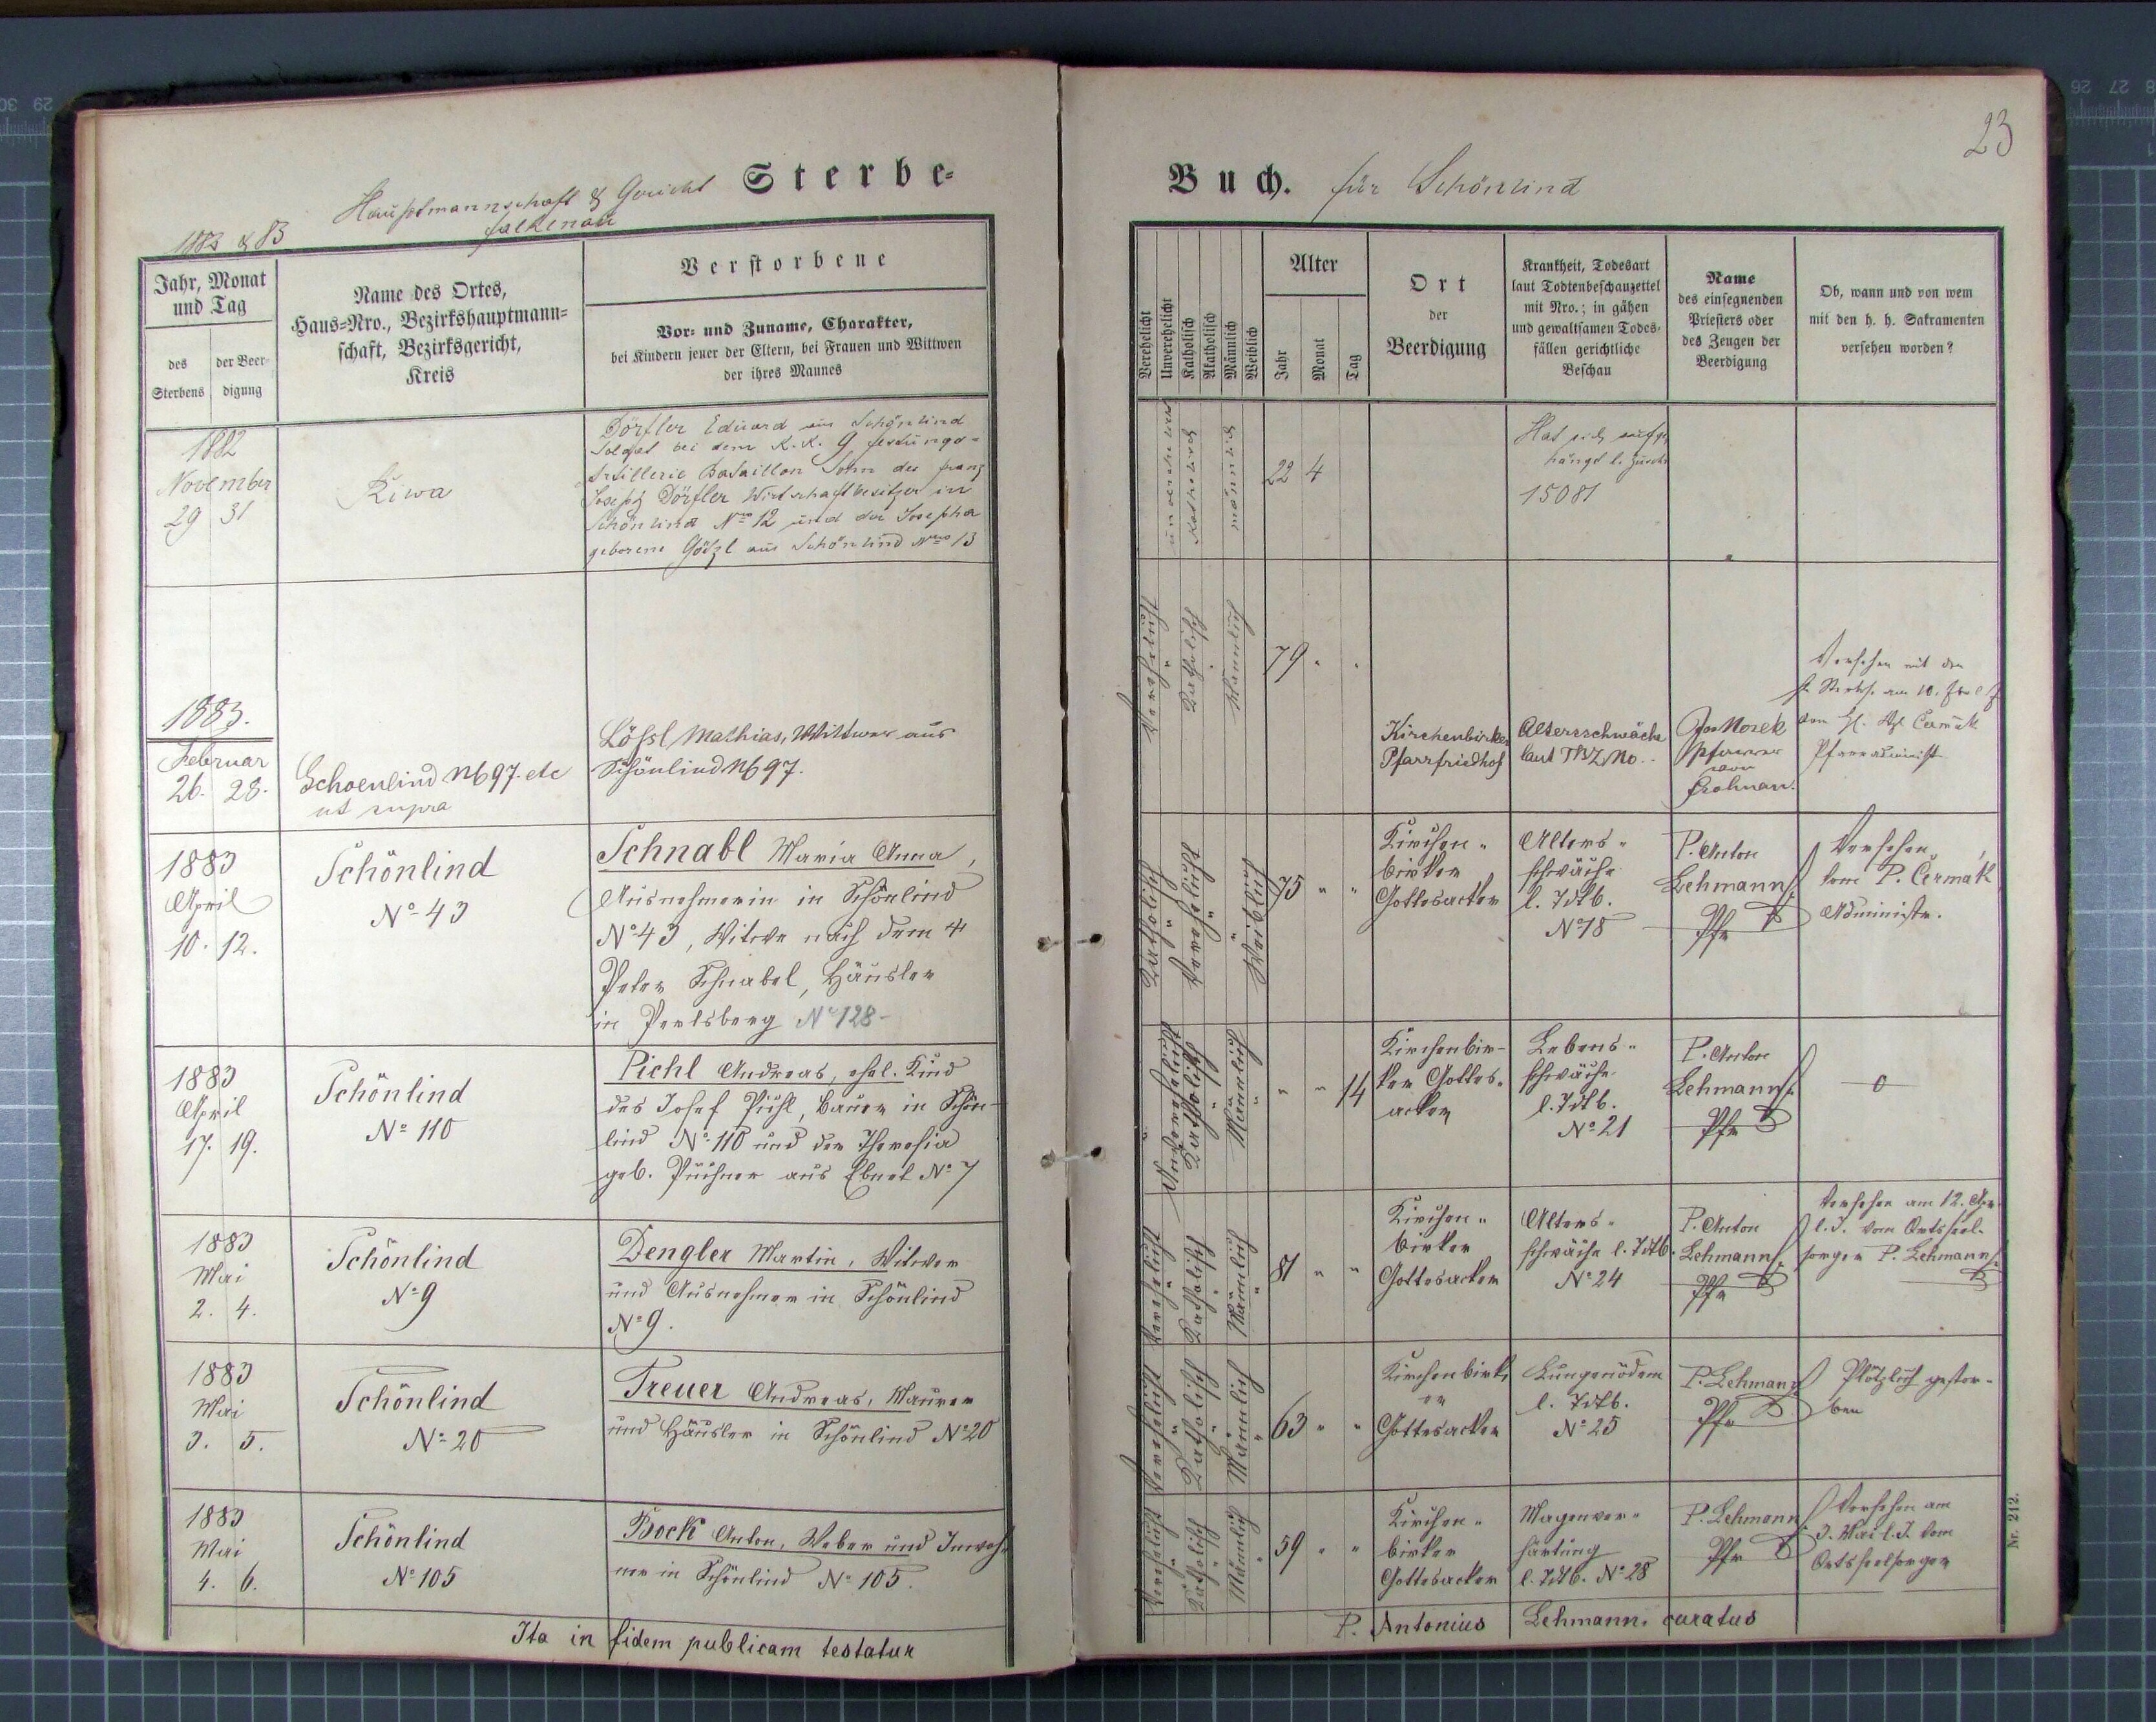 23
Hauptmannschaft & Gericht
Falkenau
Sterbe-
Buch. für Schönlind
1882 & 83
Jahr, Monat
und Tag
des
Sterbens
der Beer-
digung
Name des Ortes,
Haus-Nro., Bezirkshauptmann-
schaft, Bezirksgericht,
Kreis
Verstorbene
Vor- und Zuname, Charakter,
bei Kindern jener der Eltern, bei Frauen und Wittwen
der ihres Mannes
Verehelicht
Unverehelicht
Katholisch
Akatholisch
Männlich
Weiblich
Alter
Jahr
Monat
Tag
Ort
der
Beerdigung
Krankheit, Todesart
laut Todtenbeschauzettel
mit Nro.; in gähen
und gewaltsamen Todes-
fällen gerichtliche
Beschau
Name
des einsegnenden
Priesters oder
des Zeugen der
Beerdigung
Ob, wann und von wem
mit den h. h. Sakramenten
versehen worden?
1882
November
29 31
Riwa
Dörfler Eduard aus Schönlind
Soldat bei dem K. K. 9 Festungs-
Artillerie Bataillon Sohn des Franz
Joseph Dörfler Wirtschaftbesitzer in
Schönlind Nro 12 und der Josepha
geborene Götzl aus Schönlind Nro 13
Katholisch
männlich
22 4
Hat sich aufge
hängt l. Zuschr
15081
1883.
Februar
26. 28.
Schoenlind N 97. etc
ut supra
Lößl Mathias, Wittwer aus
Schönlind N 97.
Verehelicht
Katholisch
Männlich
79 " "
Kirchenbirker
Pfarrfriedhof
Altersschwäche
laut TBZ No..
Jos Morek
Pfarrer
von
Versehen mit den
am 10.
Cermak
Pfarradminist.
1883
April
10. 12.
Schönlind
No 43
Schnabl Maria Anna,
Ausnehmerin in Schönlind
No 43, Witwe nach dem †
Peter Schnabel, Häusler
in Perlsberg No 128-
Katholisch
Verehelicht
Weiblich
75 " "
Kirchen-
birker
Gottesacker
Alters-
schwäche
l. Tdtb.
No 18
P. Anton
Lehmann
Pfr
Versehen
vom P. Čermák
Administr.
1883
April
17. 19.
Schönlind
No 110
Pichl Andreas, ehel. Kind
des Josef Pichl, Bauer in Schön-
lind No 110 und der Theresia
geb. Püchner aus Ebnet No 7
Unverehelicht
Katholisch
Männlich
" " 14
Kirchenbir-
ker Gottes-
acker
Lebens-
schwäche
l. Tdtb.
No 21
P. Anton
Lehmann
Pfr
0
1883
Mai
2. 4.
Schönlind
No 9
Dengler Martin, Witwer
und Ausnehmer in Schönlind
No 9.
Verehelicht
Katholisch
Männlich
81 " "
Kirchen-
birker
Gottesacker
Alters-
schwäche l. Tdtb.
No 24
P. Anton
Lehmann
Pfr
Versehen am 12. Apr.
l. J. vom Ortsseel-
sorger P. Lehmann
1883
Mai
3. 5.
Schönlind
No 20
Treuer Andreas, Maurer
und Häusler in Schönlind No 20
Verehelicht
Katholisch
Männlich
63 " "
Kirchenbirk,
er
Gottesacker
Lungenödem
l. Tdtb.
No 25
P. Lehmann
Pfr
Plötzlich gestor-
ben
1883
Mai
4. 6.
Schönlind
No 105
Bock Anton, Weber und Inwoh-
ner in Schönlind No 105.
Verehelicht
Katholisch
Männlich
59 " "
Kirchen-
birker
Gottesacker
Magenver-
härtung
l. Tdtb. No 28
P. Lehmann
Pfr
Versehen am
3. Mai l. J. vom
Ortsseelsorger
Ita in fidem publicam testatur
P. Antonius Lehmann, curatus
Nr. 212.